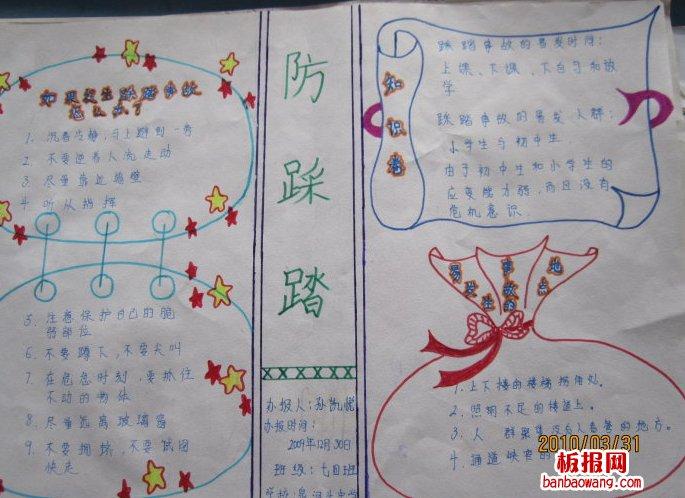 如果发生踩踏事故
怎么办？
1. 沉着冷静,马上避到一旁
2. 不要逆着人流走动
3. 尽量靠近墙壁
4. 听从指挥
5. 注意保护自己的脆
弱部位
6. 不要蹲下,不要尖叫
7. 在危急时刻,要抓住
不动的物体
8. 尽量远离玻璃窗
9. 不要拥挤,不要试图
快走
防
踩
踏
办报人:孙凯悦
办报时间:
2009年12月30日
班级:七四班
知
识
卷
踩踏事故的易发时间:
上课、下课、下自习和放
学
踩踏事故的易发人群:
小学生与初中生
由于初中生和小学生的
应变能力弱,而且没有
危机意识.
易发生事故的地点
1. 上下楼的楼梯拐角处。
2. 照明不足的楼道上。
3. 人群聚集没有人看管的地方。
4. 通道狭窄的
2010/03/31
板报网
banbaowang.com